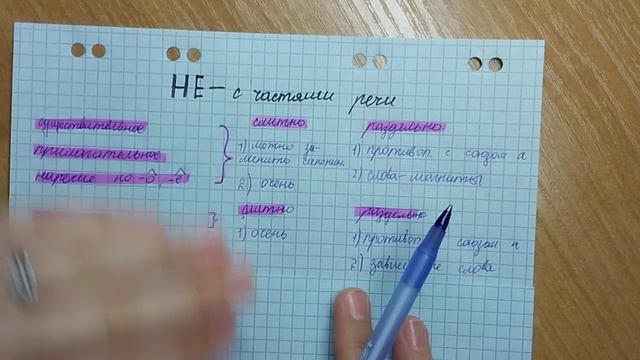 НЕ – с частями речи
существительное
прилагательное
наречие на -о, -е
слитно
1) можно за-
менить синоним.
2) очень
раздельно
1) противоп. с союзом а
2) слова-магниты
слитно
1) очень
раздельно
1) противоп. с союзом а
2) слова